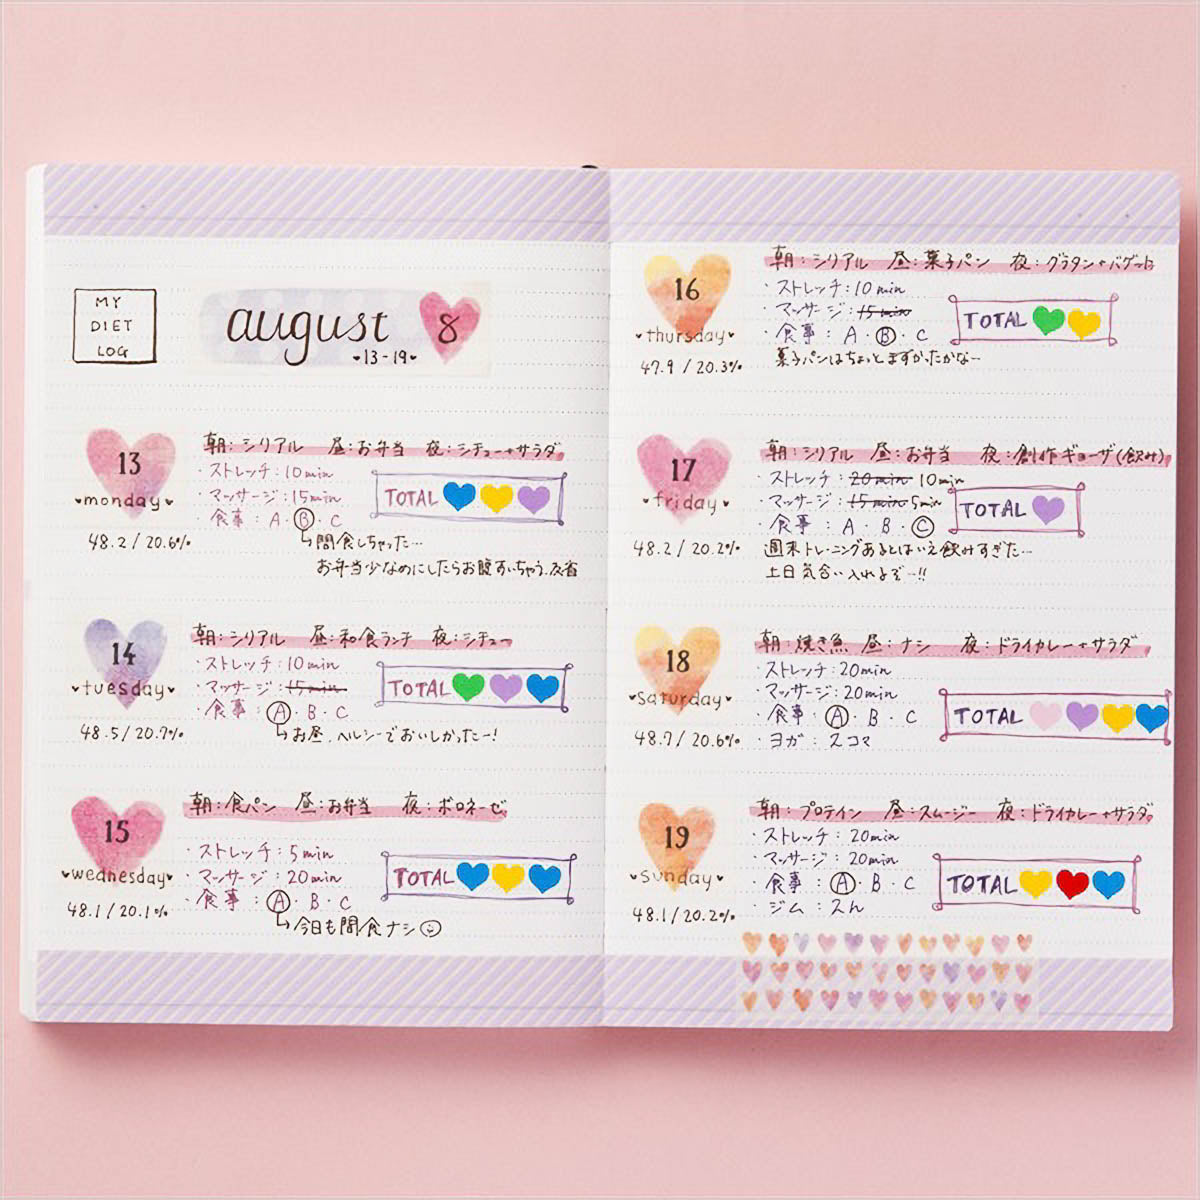 MY
DIET
LOG
august 8
♥13-19♥
13
♥monday♥
48.2 / 20.6%
朝:シリアル 昼:お弁当 夜:シチュー+サラダ
・ストレッチ:10min
・マッサージ:15min
・食事:A・B・C
TOTAL
↳間食しちゃった…
お弁当少なめにしたらお腹すいちゃう、反省
14
♥tuesday♥
48.5 / 20.7%
朝:シリアル 昼:和食ランチ 夜:シチュー
・ストレッチ:10min
・マッサージ:15min
・食事:A・B・C
TOTAL
↳お昼、ヘルシーでおいしかったー!
15
♥wednesday♥
48.1 / 20.1%
朝:食パン 昼:お弁当 夜:ボロネーゼ
・ストレッチ:5min
・マッサージ:20min
・食事:A・B・C
TOTAL
↳今日も間食ナシ☺
16
♥thursday♥
47.9 / 20.3%
朝:シリアル 昼:菓子パン 夜:グラタン+バゲット
・ストレッチ:10min
・マッサージ:15min
・食事:A・B・C
TOTAL
菓子パンはちょっとまずかったかな…
17
♥friday♥
48.2 / 20.2%
朝:シリアル 昼:お弁当 夜:創作ギョーザ(飲み)
・ストレッチ:20min 10min
・マッサージ:15min 5min
・食事:A・B・C
TOTAL
週末トレーニングあるとはいえ飲みすぎた…
土日気合い入れるぞー!!
18
♥saturday♥
48.7 / 20.6%
朝:焼き魚 昼:ナシ 夜:ドライカレー+サラダ
・ストレッチ:20min
・マッサージ:20min
・食事:A・B・C
・ヨガ:2コマ
TOTAL
19
♥sunday♥
48.1 / 20.2%
朝:プロテイン 昼:スムージー 夜:ドライカレー+サラダ
・ストレッチ:20min
・マッサージ:20min
・食事:A・B・C
・ジム:2h
TOTAL